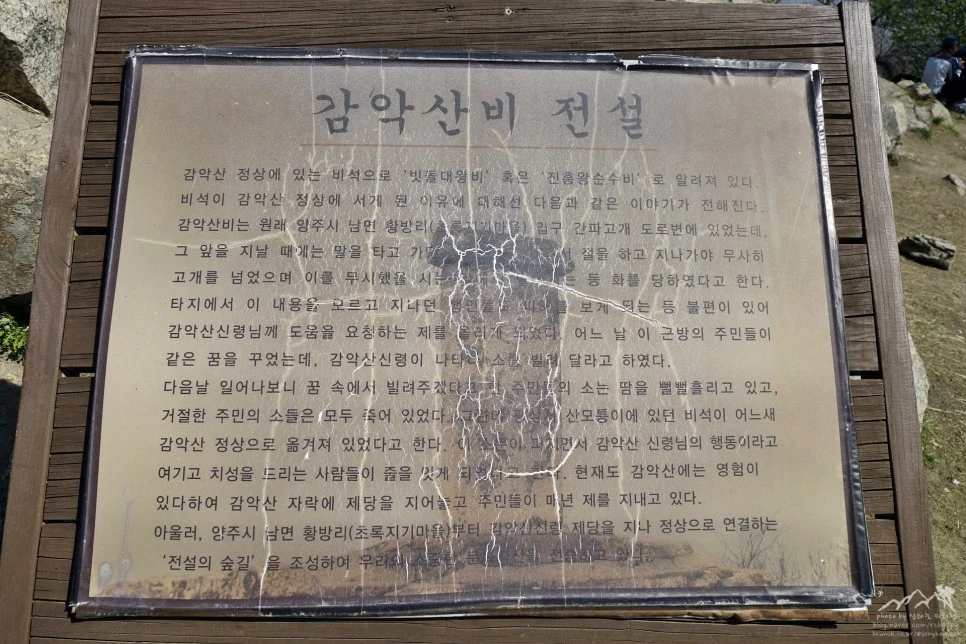 감악산비 전설
감악산 정상에 있는 비석으로 '빗돌대왕비' 혹은 '진흥왕순수비' 로 알려져 있다.
비석이 감악산 정상에 서게 된 이유에 대해선 다음과 같은 이야기가 전해진다.
감악산비는 원래 양주시 남면 황방리(초록지기마을) 입구 간파고개 도로변에 있었는데,
그 앞을 지날 때에는 말을 타고 절을 하고 지나가야 무사히
고개를 넘었으며 이를 무시했을 시는 등 화를 당하였다고 한다.
타지에서 이 내용을 모르고 지나던 보게 되는 등 불편이 있어
감악산신령님께 도움을 요청하는 제를 올리게 되었다. 어느 날 이 근방의 주민들이
같은 꿈을 꾸었는데, 감악산신령이 나타나 소를 빌려 달라고 하였다.
다음날 일어나보니 꿈 속에서 빌려주겠다고 한 주민들의 소는 땀을 뻘뻘흘리고 있고,
거절한 주민의 소들은 모두 죽어 있었다. 산모퉁이에 있던 비석이 어느새
감악산 정상으로 옮겨져 있었다고 한다. 이 소문이 퍼지면서 감악산 신령님의 행동이라고
여기고 치성을 드리는 사람들이 줄을 잇게 되었다고 한다. 현재도 감악산에는 영험이
있다하여 감악산 자락에 제당을 지어놓고 주민들이 매년 제를 지내고 있다.
아울러, 양주시 남면 황방리(초록지기마을)부터 감악산신령 제당을 지나 정상으로 연결하는
'전설의 숲길' 을 조성하여 우리의 전승하고 있다.
photo by